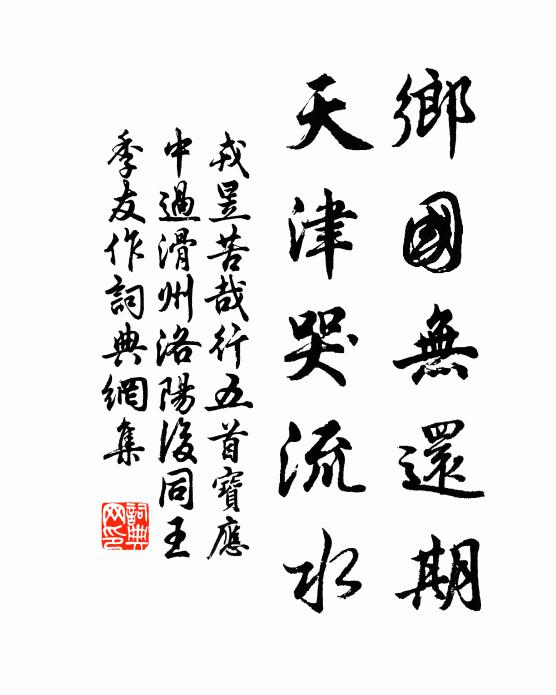 鄉國無還期
天津哭流水
戎昱苦哉行五首寶應
中過滑州洛陽後同王
季友作詞典網集
詞典网印